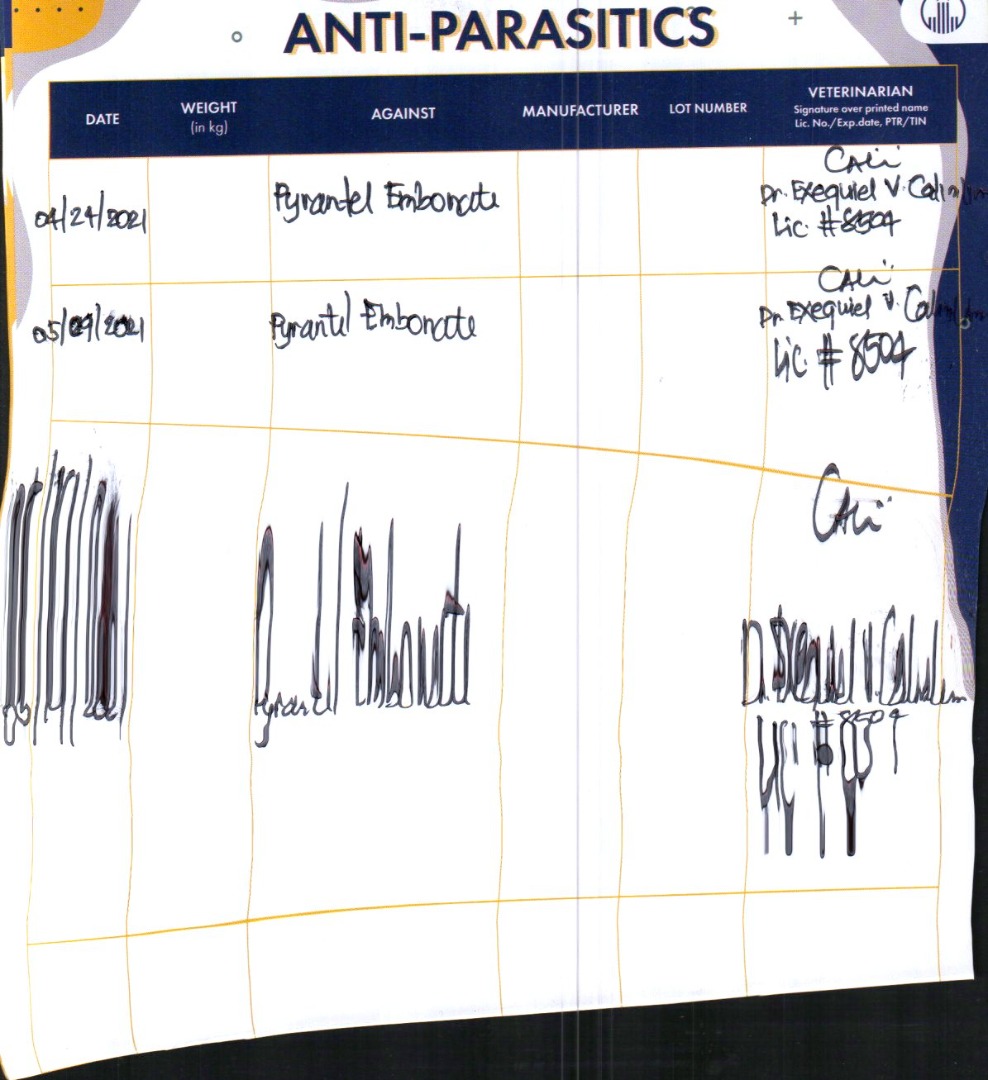 ANTI-PARASITICS
DATE
WEIGHT
(in kg)
AGAINST
MANUFACTURER
LOT NUMBER
VETERINARIAN
Signature over printed name
Lic. No./Exp.date, PTR/TIN
04/24/2021
Pyrantel Embonate
Cali
Dr. Exequiel V.
Lic. #8504
05/09/2021
Pyrantel Embonate
Cali
Dr. Exequiel V.
Lic. #8504
Pyrantel Embonate
Cali
Dr. Exequiel V.
Lic # 8504